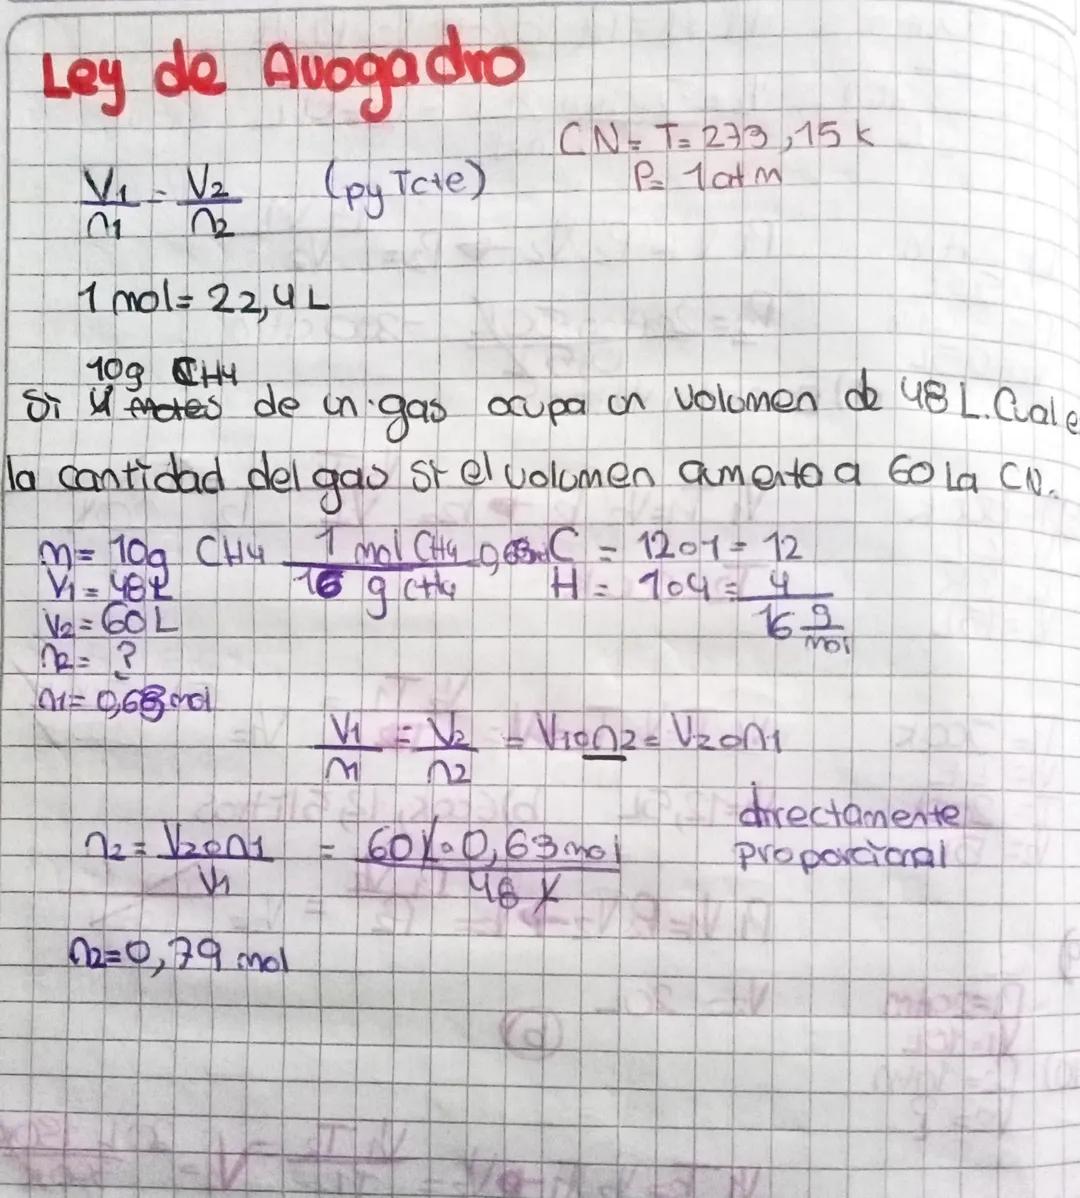 Ley de Avogadro
CN= T= 273,15 k
P= 1atm
V1/n1 = V2/n2 (p y T cte)
1 mol= 22,4 L
10g CH4
Si 4 motes de un gas ocupa un volumen de 48 L. Cual e
la cantidad del gas si el volumen amenta a 60 L a CN.
m= 10g CH4 1 mol CH4 / 16 g CH4 0,63mol C = 12•1= 12
V1= 48L H = 1•4= 4
V2= 60L 16 g/mol
n2= ?
n1= 0,63mol
V1/n1 = V2/n2 = V1•n2= V2•n1
directamente
proporcional
n2= V2•n1/V1 = 60L•0,63mol/48 L
n2=0,79 mol